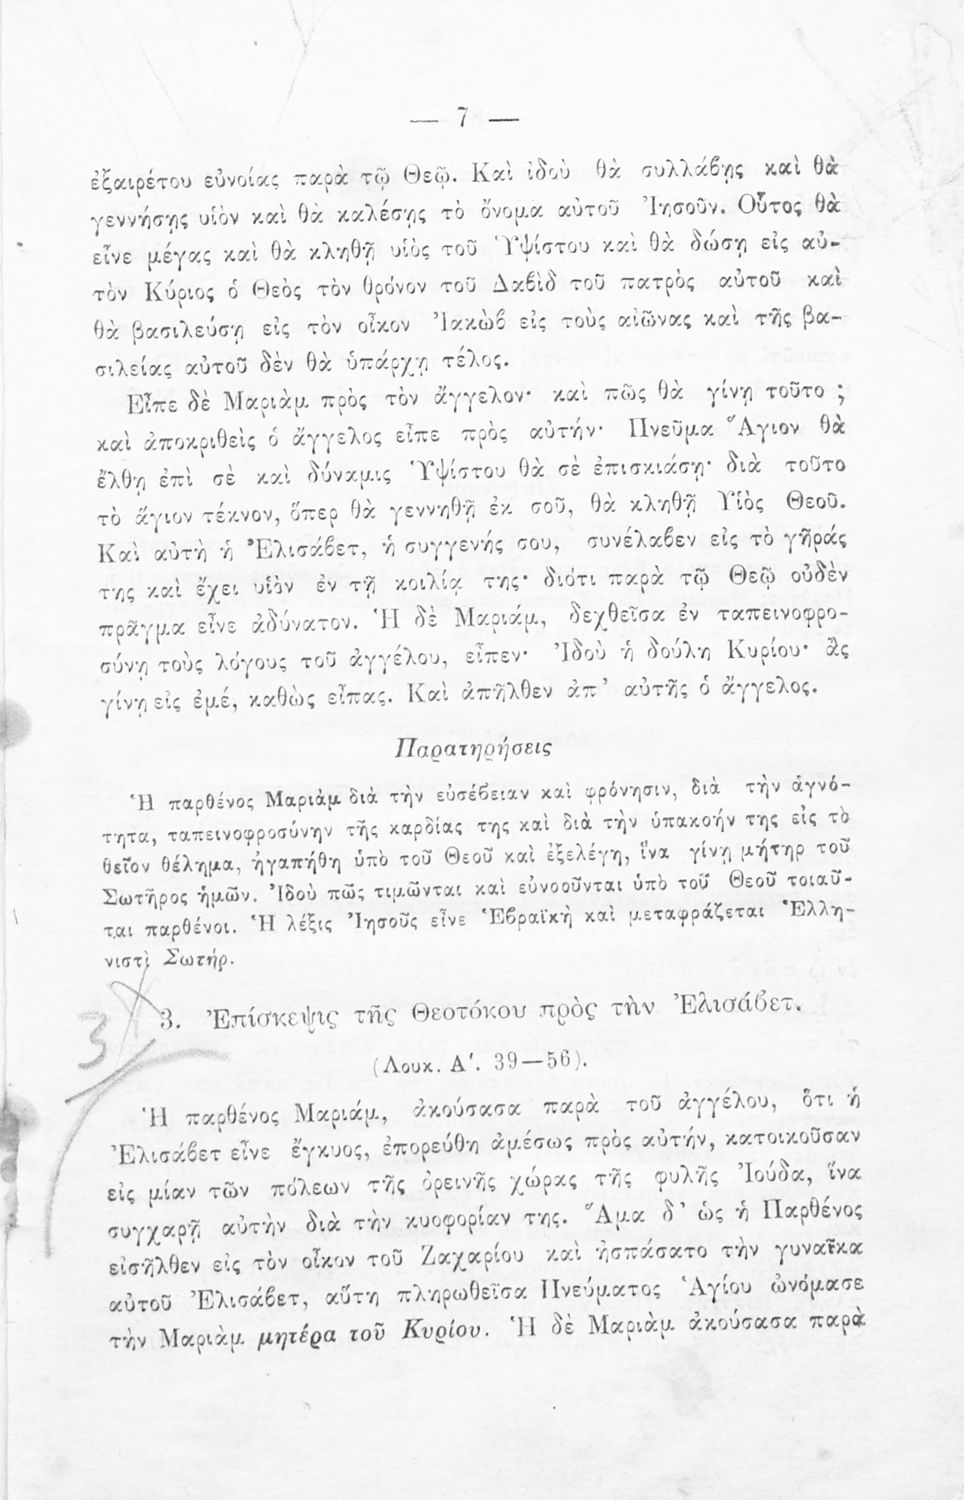 — 7 —
ἐξαιρέτου εὐνοίας παρὰ τῷ Θεῷ. Καὶ ἰδοὺ θὰ συλλάβῃς καὶ θὰ
γεννήσῃς υἱὸν καὶ θὰ καλέσῃς τὸ ὄνομα αὐτοῦ Ἰησοῦν. Οὗτος θὰ
εἶνε μέγας καὶ θὰ κληθῇ υἱὸς τοῦ Ὑψίστου καὶ θὰ δώσῃ εἰς αὐ-
τὸν Κύριος ὁ Θεὸς τὸν θρόνον τοῦ Δαβὶδ τοῦ πατρὸς αὐτοῦ καὶ
θὰ βασιλεύσῃ εἰς τὸν οἶκον Ἰακὼβ εἰς τοὺς αἰῶνας καὶ τῆς βα-
σιλείας αὐτοῦ δὲν θὰ ὑπάρχῃ τέλος.
Εἶπε δὲ Μαριὰμ πρὸς τὸν ἄγγελον· καὶ πῶς θὰ γίνῃ τοῦτο ;
καὶ ἀποκριθεὶς ὁ ἄγγελος εἶπε πρὸς αὐτήν· Πνεῦμα Ἅγιον θὰ
ἔλθῃ ἐπὶ σὲ καὶ δύναμις Ὑψίστου θὰ σὲ ἐπισκιάσῃ· διὰ τοῦτο
τὸ ἅγιον τέκνον, ὅπερ θὰ γεννηθῇ ἐκ σοῦ, θὰ κληθῇ Υἱὸς Θεοῦ.
Καὶ αὐτὴ ἡ Ἐλισάβετ, ἡ συγγενής σου, συνέλαβεν εἰς τὸ γῆράς
της καὶ ἔχει υἱὸν ἐν τῇ κοιλίᾳ της· διότι παρὰ τῷ Θεῷ οὐδὲν
πρᾶγμα εἶνε ἀδύνατον. Ἡ δὲ Μαριάμ, δεχθεῖσα ἐν ταπεινοφρο-
σύνῃ τοὺς λόγους τοῦ ἀγγέλου, εἶπεν· Ἰδοὺ ἡ δούλη Κυρίου· ἂς
γίνῃ εἰς ἐμέ, καθὼς εἶπας. Καὶ ἀπῆλθεν ἀπ' αὐτῆς ὁ ἄγγελος.
Παρατηρήσεις
Ἡ παρθένος Μαριὰμ διὰ τὴν εὐσέβειαν καὶ φρόνησιν, διὰ τὴν ἁγνό-
τητα, ταπεινοφροσύνην τῆς καρδίας της καὶ διὰ τὴν ὑπακοήν της εἰς τὸ
θεῖον θέλημα, ἠγαπήθη ὑπὸ τοῦ Θεοῦ καὶ ἐξελέγη, ἵνα γίνῃ μήτηρ τοῦ
Σωτῆρος ἡμῶν. Ἰδοὺ πῶς τιμῶνται καὶ εὐνοοῦνται ὑπὸ τοῦ Θεοῦ τοιαῦ-
ται παρθένοι. Ἡ λέξις Ἰησοῦς εἶνε Ἑβραϊκὴ καὶ μεταφράζεται Ἑλλη-
νιστὶ Σωτήρ.
3
3. Ἐπίσκεψις τῆς Θεοτόκου πρὸς τὴν Ἐλισάβετ.
(Λουκ. Α'. 39—56).
Ἡ παρθένος Μαριάμ, ἀκούσασα παρὰ τοῦ ἀγγέλου, ὅτι ἡ
Ἐλισάβετ εἶνε ἔγκυος, ἐπορεύθη ἀμέσως πρὸς αὐτήν, κατοικοῦσαν
εἰς μίαν τῶν πόλεων τῆς ὀρεινῆς χώρας τῆς φυλῆς Ἰούδα, ἵνα
συγχαρῇ αὐτὴν διὰ τὴν κυοφορίαν της. Ἅμα δ' ὡς ἡ Παρθένος
εἰσῆλθεν εἰς τὸν οἶκον τοῦ Ζαχαρίου καὶ ἠσπάσατο τὴν γυναῖκα
αὐτοῦ Ἐλισάβετ, αὕτη πληρωθεῖσα Πνεύματος Ἁγίου ὠνόμασε
τὴν Μαριὰμ μητέρα τοῦ Κυρίου. Ἡ δὲ Μαριὰμ ἀκούσασα παρὰ